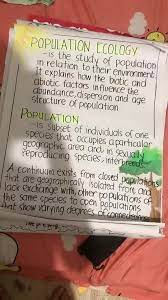 POPULATION ECOLOGY
- is the study of population
in relation to their environment.
It explains how the biotic and
abiotic factors influence the
abundance, dispersion and age
structure of population
POPULATION
- is subset of individuals of one
species that occupies a particular
geographic area and in sexually
reproducing species, interbreeds
A continuum exists from closed populations
that are geographically isolated from and
lack exchange with other populations of
the same species to open populations
that show varying degrees of connectedness